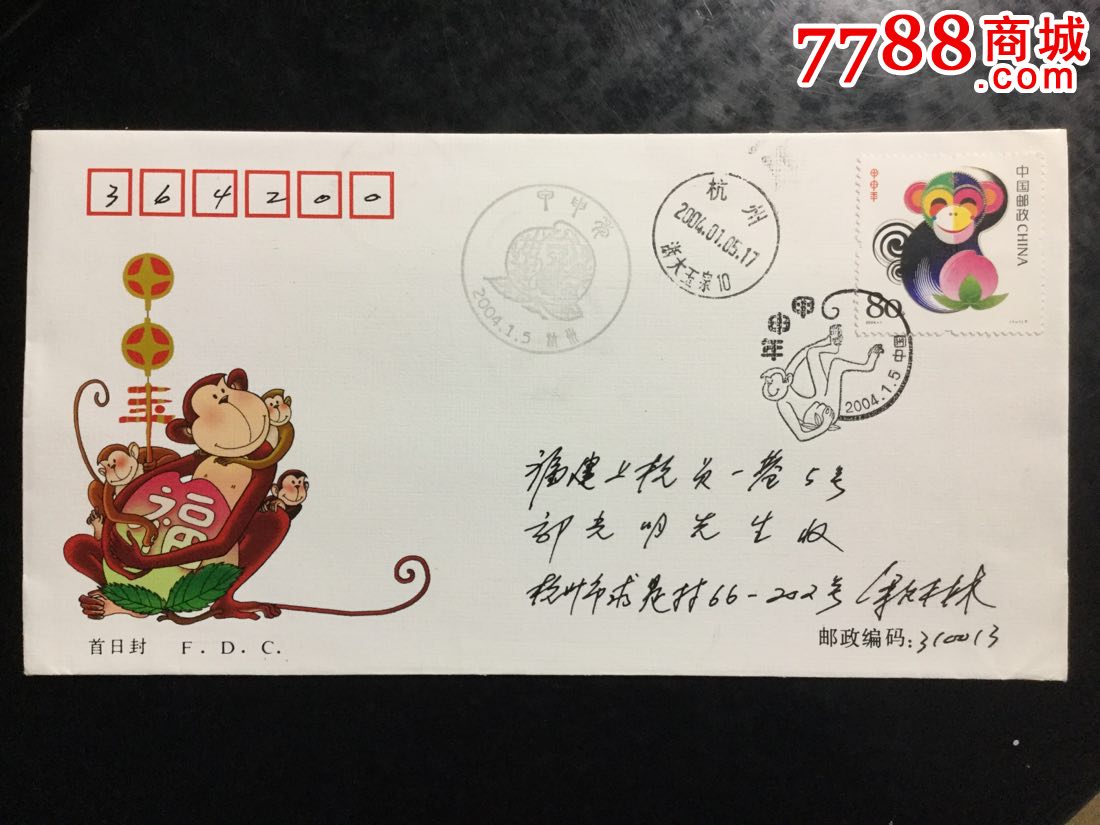 7788商城
.com
364200
甲申年
2004.1.5 杭州
杭州
2004.01.05.17
浙大玉泉10
甲申年
中国邮政CHINA
80
甲申年
2004.1.5 中国
福
福建上杭员一巷5号
郭光明先生收
杭州市求是村66-202号
首日封 F.D.C.
邮政编码:310013